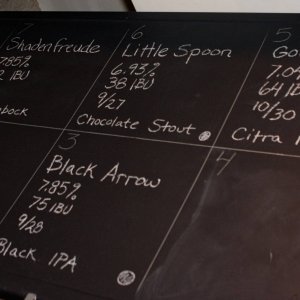 7
Shadenfreude
7.85%
IBU
bock
6
Little Spoon
6.93%
38 IBU
9/27
Chocolate Stout
5
Go
7.0
64 IB
10/30
Citra I
3
Black Arrow
7.85%
75 IBU
9/28
Black IPA
4